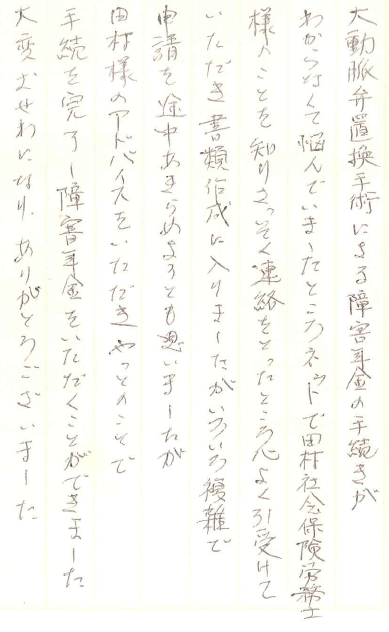 大動脈弁置換手術による障害年金の手続きが
わからなくて悩んでいましたところネットで田村社会保険労務士
様のことを知りさっそく連絡をとったところ心よく引受けて
いただき書類作成に入りましたがいろいろ複雑で
申請を途中あきらめようとも思いましたが
田村様のアドバイスをいただきやっとのことで
手続を完了し障害年金をいただくことができました
大変おせわになり、ありがとうございました